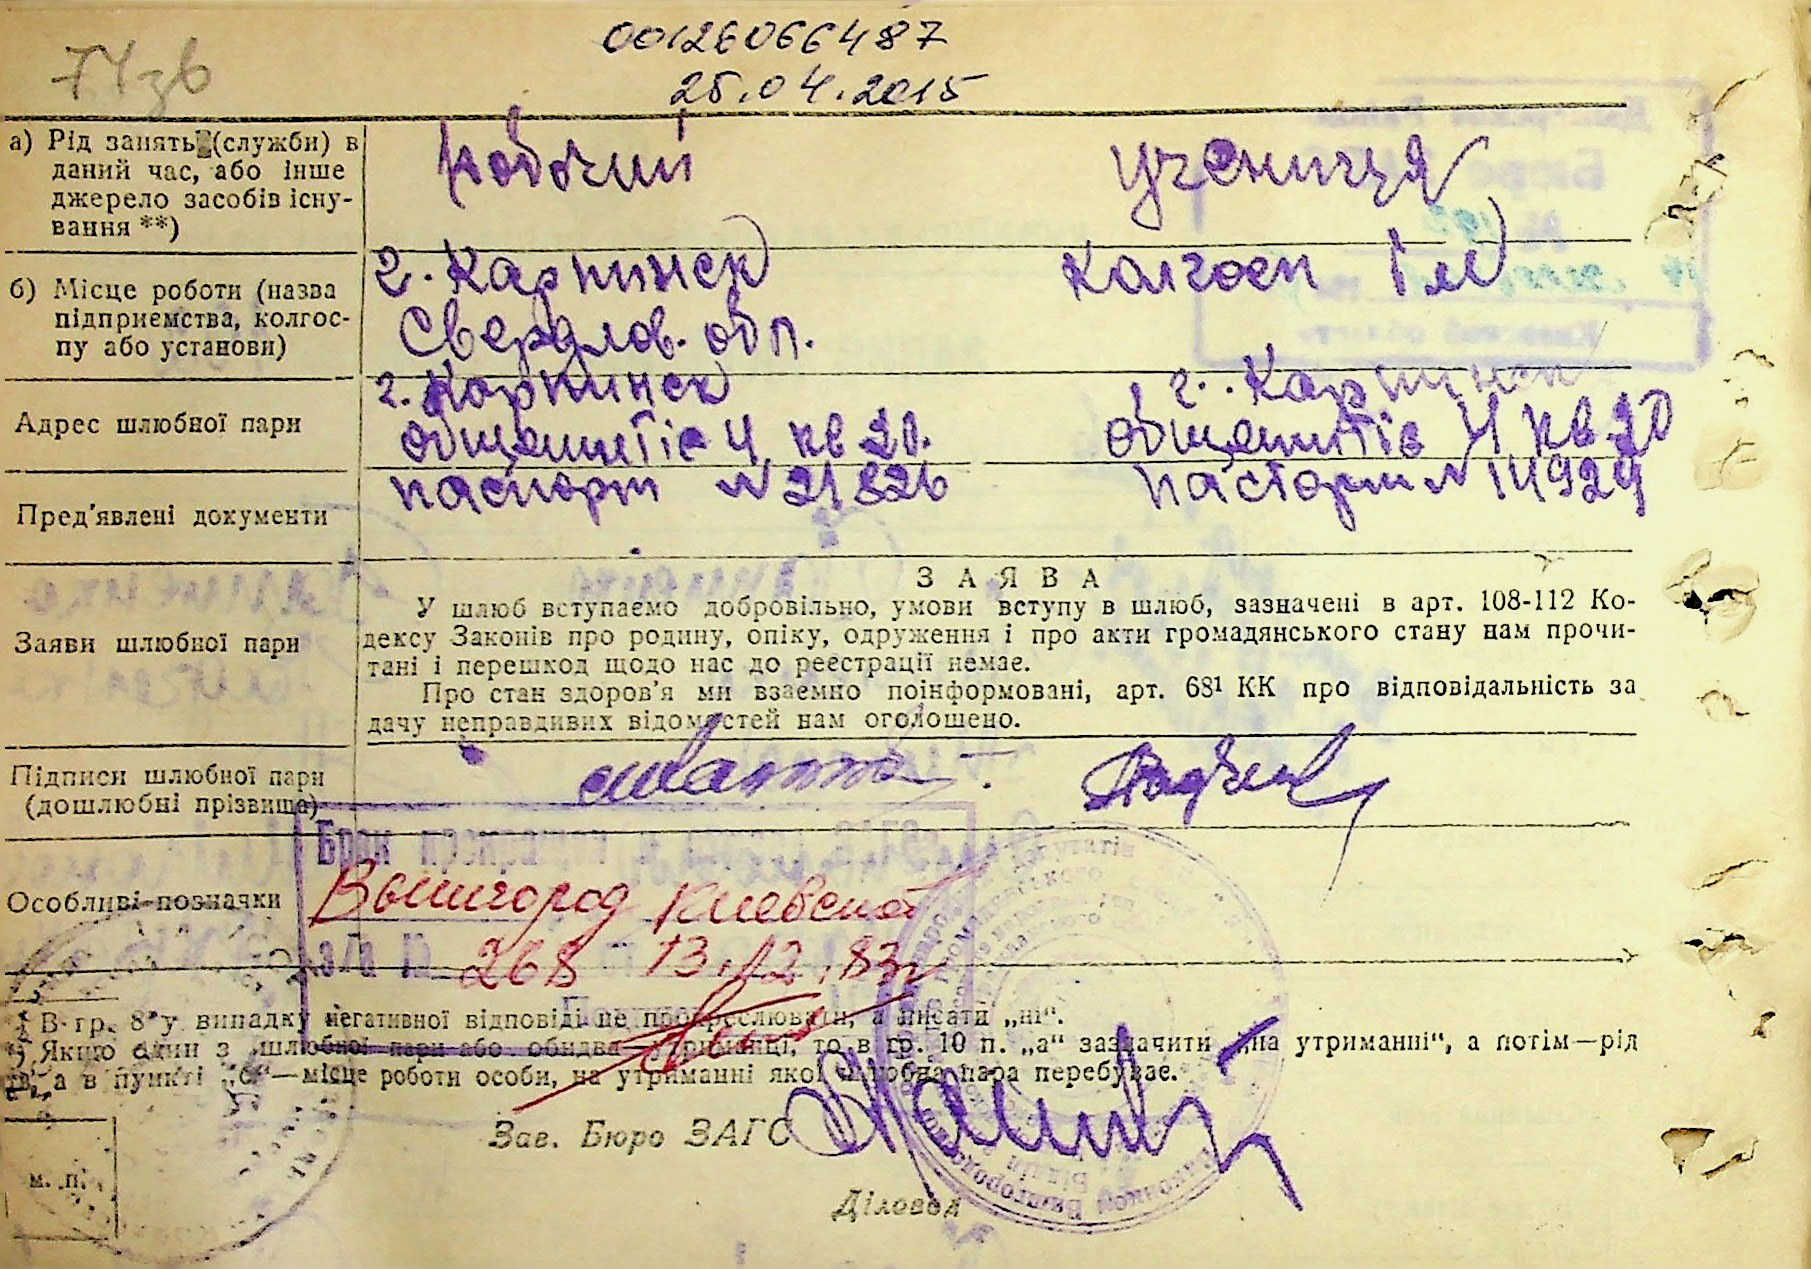 74зв
00126066487
25.04.2015
а) Рід занять (служби) в даний час, або інше джерело засобів існування **)
Робочий
учениця
б) Місце роботи (назва підприємства, колгоспу або установи)
г. Карпинск
Свердлов. обл.
Колгосп
Адрес шлюбної пари
г. Карпинск
г. Карпинск
кв 20.
кв 20
Пред'явлені документи
паспорт N 21826
паспорт N 14929
Заяви шлюбної пари
ЗАЯВА
У шлюб вступаємо добровільно, умови вступу в шлюб, зазначені в арт. 108-112 Ко-
дексу Законів про родину, опіку, одруження і про акти громадянського стану нам прочи-
тані і перешкод щодо нас до реєстрації немає.
Про стан здоров'я ми взаємно поінформовані, арт. 68¹ КК про відповідальність за
дачу неправдивих відомостей нам оголошено.
Підписи шлюбної пари
(дошлюбні прізвища)
Особливі позначки
Брак
Вышгород Киевской
268 13.12.83г
В гр. 8 у випадку негативної відповіді не прокреслювати, а писати „ні“.
Якщо один з шлюбної пари або обидва утриманці, то в гр. 10 п. „а“ зазначити „на утриманні“, а потім—рід
а в пункті „б“—місце роботи особи, на утриманні якої шлюбна пара перебуває.
Зав. Бюро ЗАГС
м. п.
Діловод